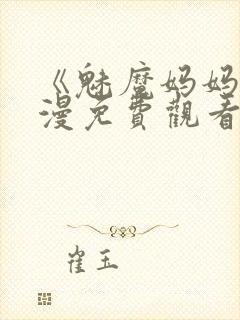 《魅魔妈妈
漫免費觀看
崔玉